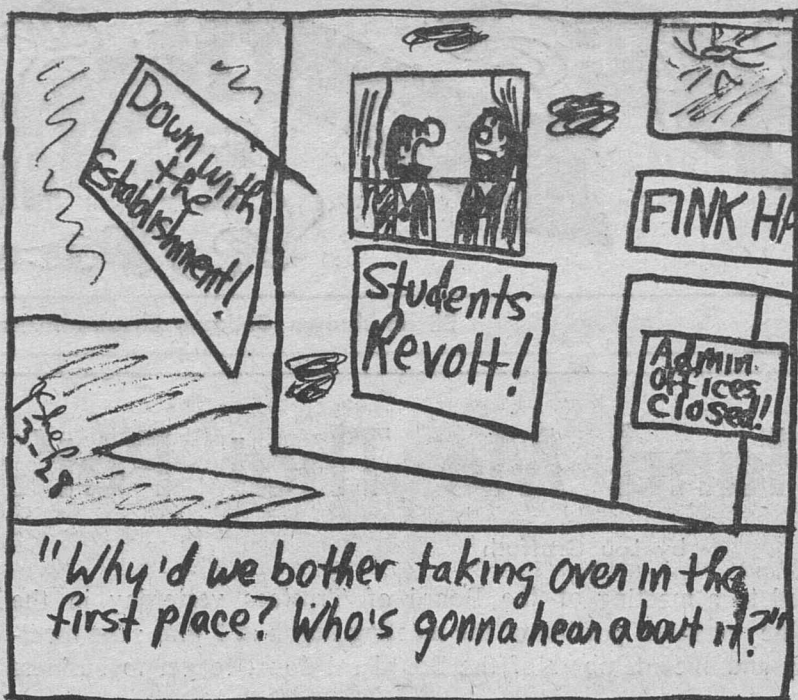 Down with
the
Establishment!
Students
Revolt!
FINK HA
Admin.
Offices
Closed!
3-28
"Why'd we bother taking over in the
first place? Who's gonna hear about it?"